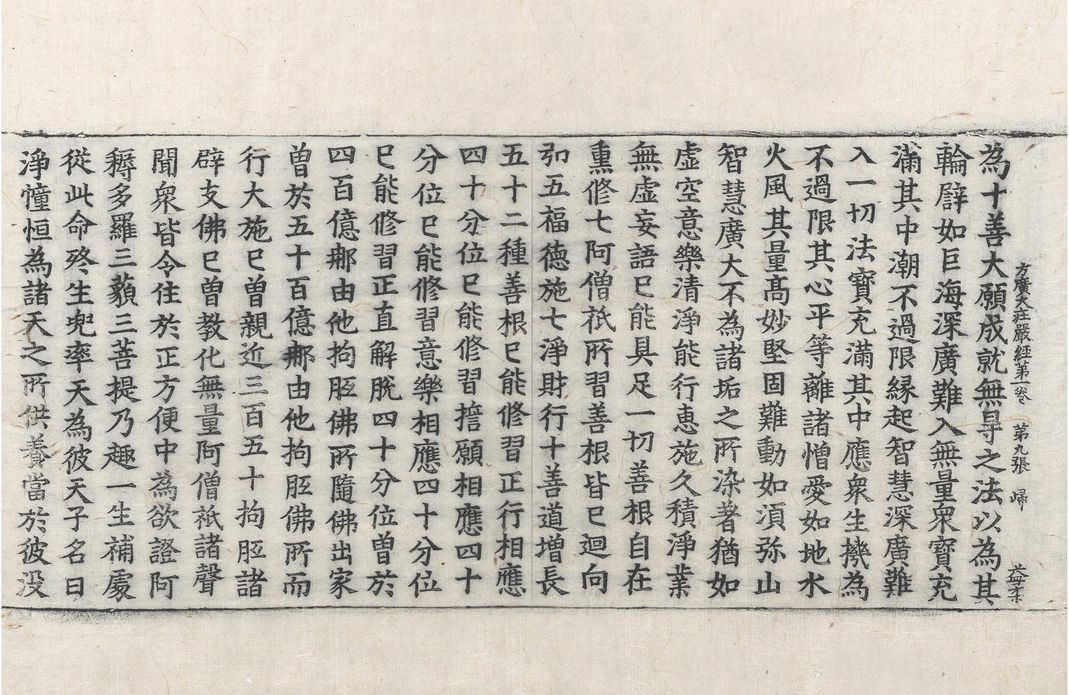 方廣大莊嚴經第一卷 第九張 歸
為十善大願成就無㝵之法以為其
輪譬如巨海深廣難入無量衆寶充
滿其中潮不過限縁起智慧深廣難
入一切法寶充滿其中應衆生機為
不過限其心平等離諸憎愛如地水
火風其量髙妙堅固難動如湏弥山
智慧廣大不為諸垢之所染著猶如
虛空意樂清淨能行惠施久積淨業
無虛妄語已能具足一切善根自在
熏修七阿僧祇所習善根皆已迴向
弘五福德施七淨財行十善道增長
五十二種善根已能修習正行相應
四十分位已能修習誓願相應四十
分位已能修習意樂相應四十分位
已能修習正直解脫四十分位曽於
四百億那由他拘胝佛所隨佛出家
曽於五十百億那由他拘胝佛所而
行大施已曽親近三百五十拘胝諸
辟支佛已曽教化無量阿僧祇諸聲
聞衆皆令住於正方便中為欲證阿
耨多羅三藐三菩提乃趣一生補處
從此命終生兜率天為彼天子名曰
淨幢恒為諸天之所供養當於彼沒